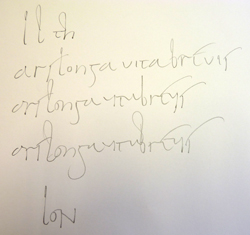 ll th
arslongavitabrevis
arslongavitabrevis
arslongavitabrevis
loN